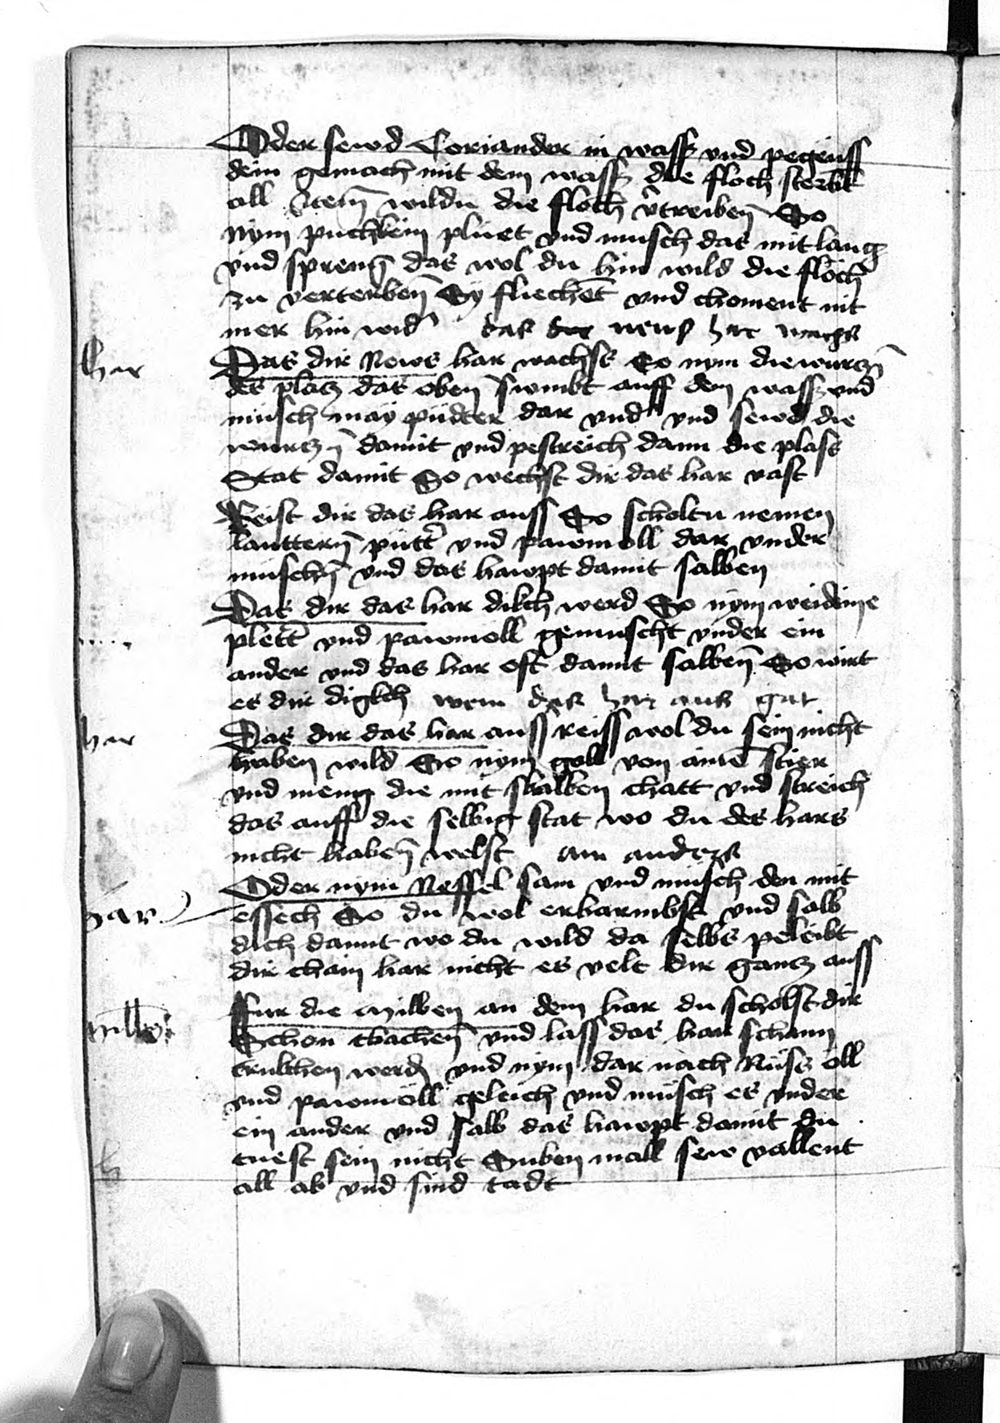 Oder sewd Coriander in wass und pegeuss
dein gemach mit dem wass die floch sterbt
all Item wildu die floch vtreiben So
nym puchkein pluet und musch das mit laug
und spreng das wol du hin wild die floch
zu verterben Sy fliechent und choment nit
mer hin wid das dir news har wachs
har
Das dir News har wachss So nym die wurczn
des placz das oben swimbt auff dem wass und
musch may putter dar und und sewd die
wurczn damit und pestreich dann die plass
Stat damit So wechst dir das har vast
Reist dir das har auss So scholtu nemen
lauttern putt und pawmoll dar under
muschn und das hawpt damit salben
Das dir das har dikch werd So nym weideine
plett und pawmoll gemuscht under ein
ander und das har oft damit salben So wirt
es dir digkch wem das har aus gat
har
Das dir das har auss reiss wol du sein nicht
haben wild So nym gall von aim stier
und meng die mit skalben chatt und streich
das auff die selbig stat wo du des hars
nicht haben welst am anders
Oder nym Nessel sam und musch den mit
har
essech So du wol erharmbst und salb
dich damit wo du wild da selbs peleibt
dir chain har nicht es velt dir gancz auss
Fur die milben an dem har du scholst dir
milben
Schon twachen und lass das har schann
trukhen werdn und nym dar nach Nuss oll
und pawmoll geleich und musch es under
ein ander und salb das hawpt damit du
tuest sein nicht Suben mall sew vallent
all ab und sind tadt